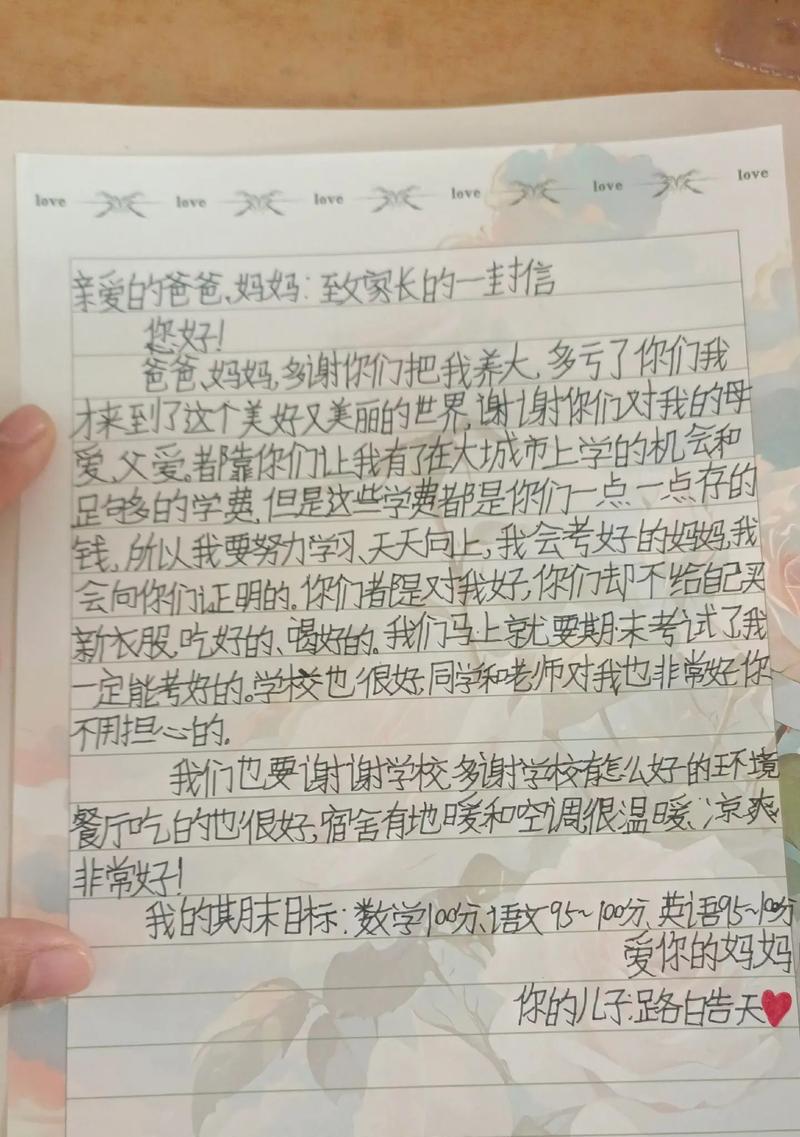 love love love love love love
亲爱的爸爸、妈妈：致家长的一封信
您好！
爸爸、妈妈，多谢你们把我养大，多亏了你们我
才来到了这个美好又美丽的世界，谢谢你们对我的母
爱，父爱。都靠你们让我有了在大城市上学的机会和
足够多的学费，但是这些学费都是你们一点一点存的
钱，所以我要努力学习、天天向上，我会考好的妈妈，我
会向你们证明的。你们都是对我好，你们却不给自己买
新衣服，吃好的、喝好的。我们马上就要期末考试了，我
一定能考好的。学校也很好，同学和老师对我也非常好，你
不用担心的。
我们也要谢谢学校，多谢学校有怎么好的环境
餐厅吃的也很好，宿舍有地暖和空调很温暖、凉爽，
非常好！
我的期末目标：数学100分、语文95~100分、英语95~100分
爱你的妈妈
你的儿子：天❤